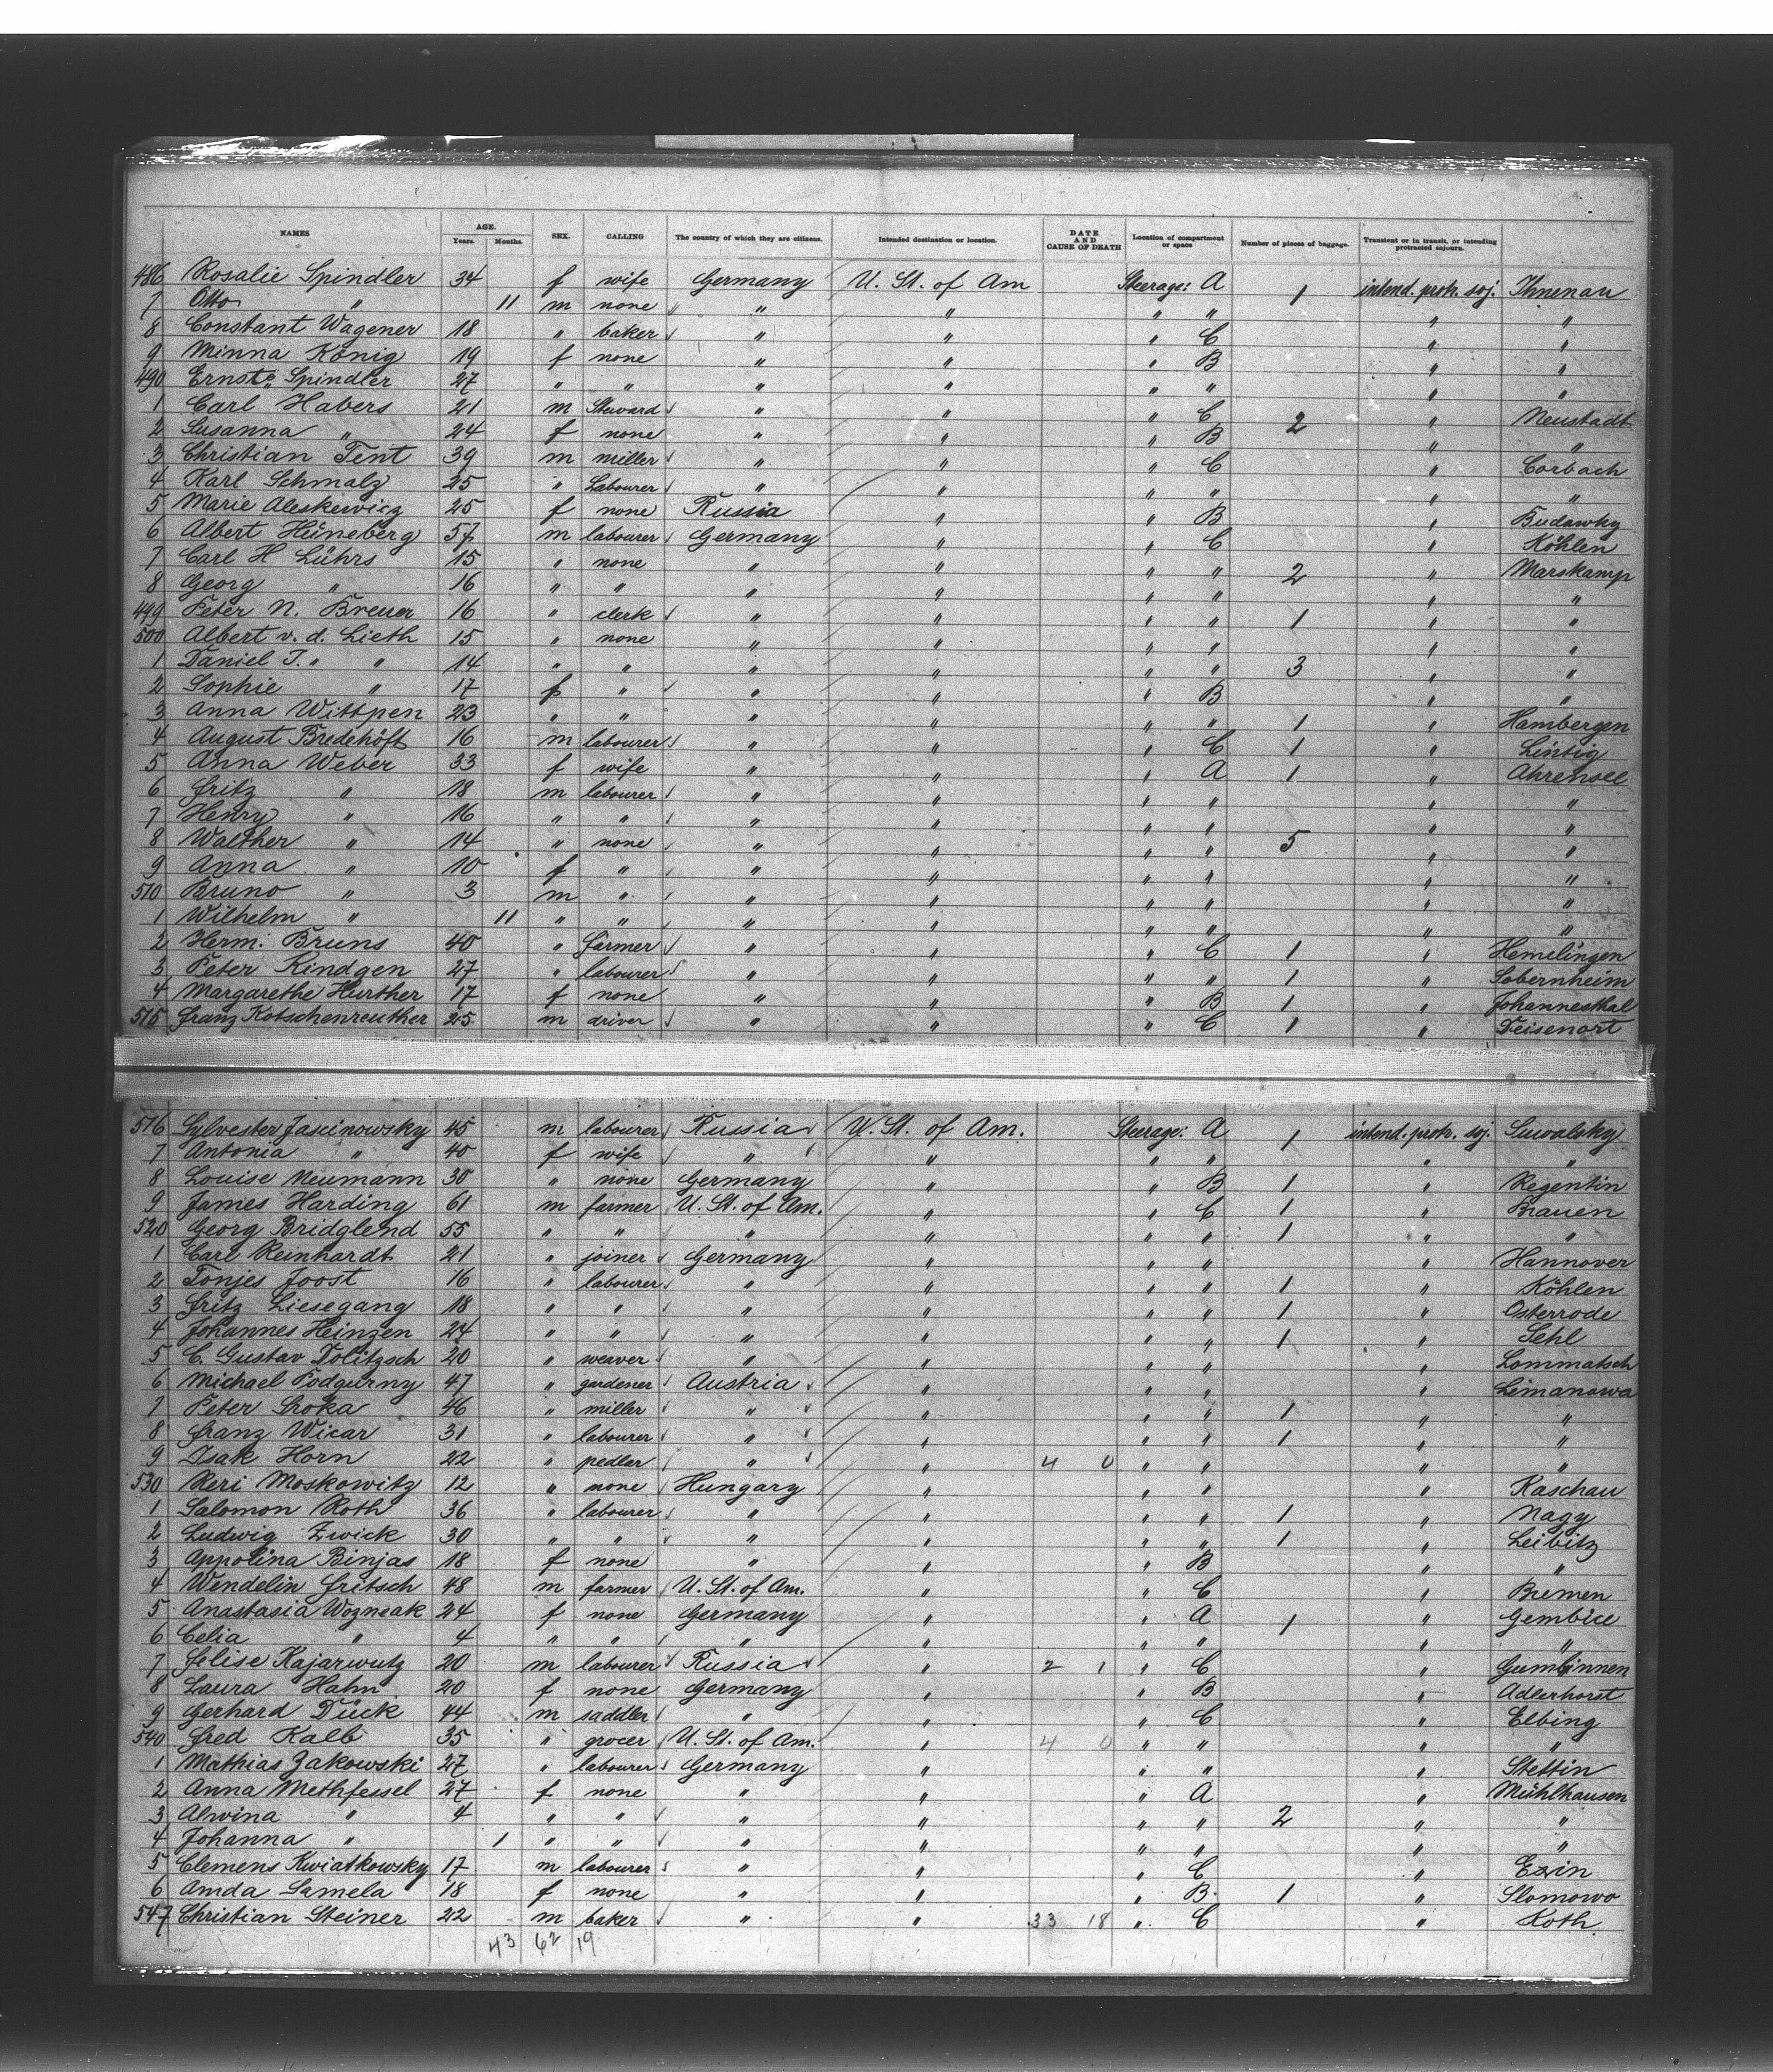 NAMES AGE. Years. Months. SEX. CALLING The country of which they are citizens. Intended destination or location. DATE AND CAUSE OF DEATH Location of compartment or space Number of pieces of baggage. Transient or in transit, or intending protracted sojourn.
486 Rosalie Spindler 34 f wife Germany U. St. of Am Steerage: A 1 intend. protr. soj.
7 Otto " 11 m none " " " " " "
8 Constant Wagener 18 " baker " " " C " "
9 Minna König 19 f none " " " B " "
490 Ernst Spindler 27 " " " " " " " "
1 Carl Habers 21 m Steward " " " C 2 " Neustadt
2 Susanna " 24 f none " " " B " "
3 Christian Tent 39 m miller " " " C " Corbach
4 Karl Schmalz 25 " Labourer " " " " " "
5 Marie Aleskewicz 25 f none Russia " " B "
6 Albert Hüneberg 57 m labourer Germany " " C " Köhlen
7 Carl H Lührs 15 " none " " " " 2 " Marskamp
8 Georg " 16 " " " " " " " "
499 Peter N. Breuer 16 " clerk " " " " 1 " "
500 Albert v. d. Lieth 15 " none " " " " " "
1 Daniel J. " " 14 " " " " " " 3 " "
2 Sophie " 17 f " " " " B " "
3 Anna Wittpen 23 " " " " " " 1 " Hambergen
4 August Bredehöft 16 m labourer " " " C 1 " Lintig
5 Anna Weber 33 f wife " " " A 1 " Ahrensee
6 Fritz " 18 m labourer " " " " " "
7 Henry " 16 " " " " " " " "
8 Walther " 14 " none " " " " 5 " "
9 Anna " 10 f " " " " " " "
510 Bruno " 3 m " " " " " " "
1 Wilhelm " 11 " " " " " " " "
2 Herm: Bruns 40 " farmer " " " C 1 " Hemelingen
3 Peter Kindgen 27 " labourer " " " " 1 " Sobernheim
4 Margarethe Hurther 17 f none " " " B 1 " Johannesthal
515 Franz Kotschenreuther 25 m driver " " " C 1 " Teisenort
516 Sylvester Jascinowsky 45 m labourer Russia U. St. of Am. Steerage: A 1 intend. protr. soj. Suwalsky
7 Antonia " 40 f wife " " " " " "
8 Louise Neumann 30 " none Germany " " B 1 " Regentin
9 James Harding 61 m farmer U. St. of Am. " " C 1 " Brauen
520 Georg Bridglend 55 " " " " " " 1 " "
1 Carl Reinhardt 21 " joiner Germany " " " " Hannover
2 Tonjes Joost 16 " labourer " " " " 1 " Köhlen
3 Fritz Liesegang 18 " " " " " " 1 " Osterrode
4 Johannes Heinzen 24 " " " " " " 1 " Sehl
5 C. Gustav Dolitzsch 20 " weaver " " " " " Lommatsch
6 Michael Podgurny 47 " gardener Austria " " " " Limanowa
7 Peter Sroka 46 " miller " " " " 1 " "
8 Franz Wicar 31 " labourer " " " " 1 " "
9 Isak Horn 22 " pedlar " " 4 0 " " " "
530 Reri Moskowitz 12 " none Hungary " " " " Kaschau
1 Salomon Roth 36 " labourer " " " " 1 " Nagy
2 Ludwig Zwick 30 " " " " " " 1 " Leibitz
3 Appolina Binjas 18 f none " " " B " "
4 Wendelin Fritsch 48 m farmer U. St. of Am. " " C " Bremen
5 Anastasia Wozneak 24 f none Germany " " A 1 " Gembice
6 Celia " 4 " " " " " " " "
7 Felise Kajarwutz 20 m labourer Russia " 2 1 " C " Gumbinnen
8 Laura Hahn 20 f none Germany " " B " Adlerhorst
9 Gerhard Dück 44 m saddler " " " C " Elbing
540 Fred Kalb 35 " grocer U. St. of Am. " 4 0 " " " "
1 Mathias Zakowski 27 " labourer Germany " " " " Stettin
2 Anna Methfessel 27 f none " " " A " Mühlhausen
3 Alwina " 4 " " " " " " 2 " "
4 Johanna " 1 " " " " " " " "
5 Clemens Kwiatkowsky 17 m labourer " " " C " Exin
6 Amda Samela 18 f none " " " B 1 " Slomowo
547 Christian Steiner 22 m baker " " 33 18 " C " Roth
43 62 19